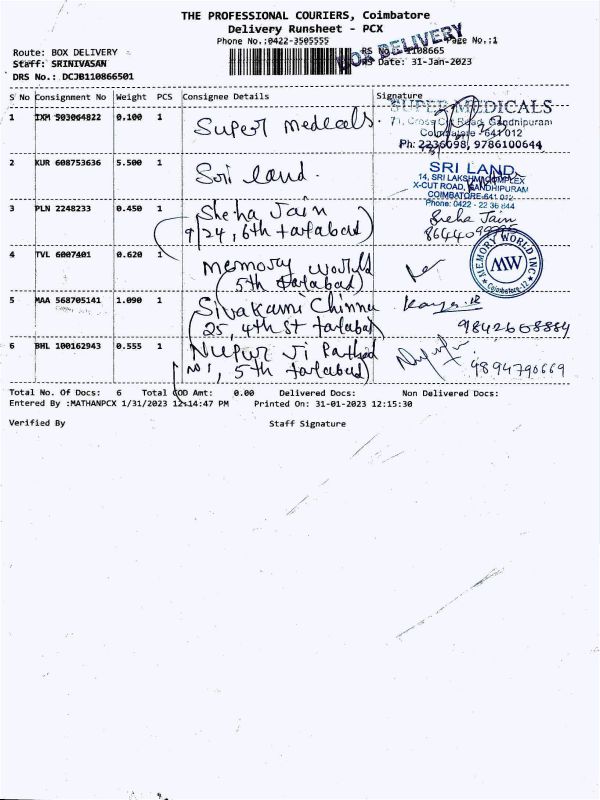 THE PROFESSIONAL COURIERS, Coimbatore
Delivery Runsheet - PCX
Phone No.:0422-3505555
Page No.:1
BOX DELIVERY
Route: BOX DELIVERY
Staff: SRINIVASAN
Date: 31-Jan-2023
DRS No.: DCJB110866501
S No Consignment No Weight PCS Consignee Details Signature
1 IXM 503064822 0.100 1 Super Medicals.
SUPER MEDICALS
71, Cross Cut Road, Gandhipuram
Coimbatore - 641 012
Ph: 2236098, 9786100644
2 KUR 608753636 5.500 1 Sri land.
SRI LAND
14, SRI LAKSHMI COMPLEX
X-CUT ROAD, GANDHIPURAM
COIMBATORE-641 012
Phone: 0422 - 22 36 844
3 PLN 2248233 0.450 1 Sneha Jain
(9/24, 6th tatabad)
Sneha Jain
4 TVL 6007401 0.620 1 memory world
(5th tatabad)
MEMORY WORLD INC
MW
Coimbatore-12
5 MAA 568705141 1.090 1 Sivakami Chinnu
(25, 4th St tatabad)
9842608884
6 BHL 100162943 0.555 1 Nupur Ji
(No 1, 5th tatabad)
9894790669
Total No. Of Docs: 6 Total COD Amt: 0.00 Delivered Docs: Non Delivered Docs:
Entered By :MATHANPCX 1/31/2023 12:14:47 PM Printed On: 31-01-2023 12:15:30
Verified By Staff Signature